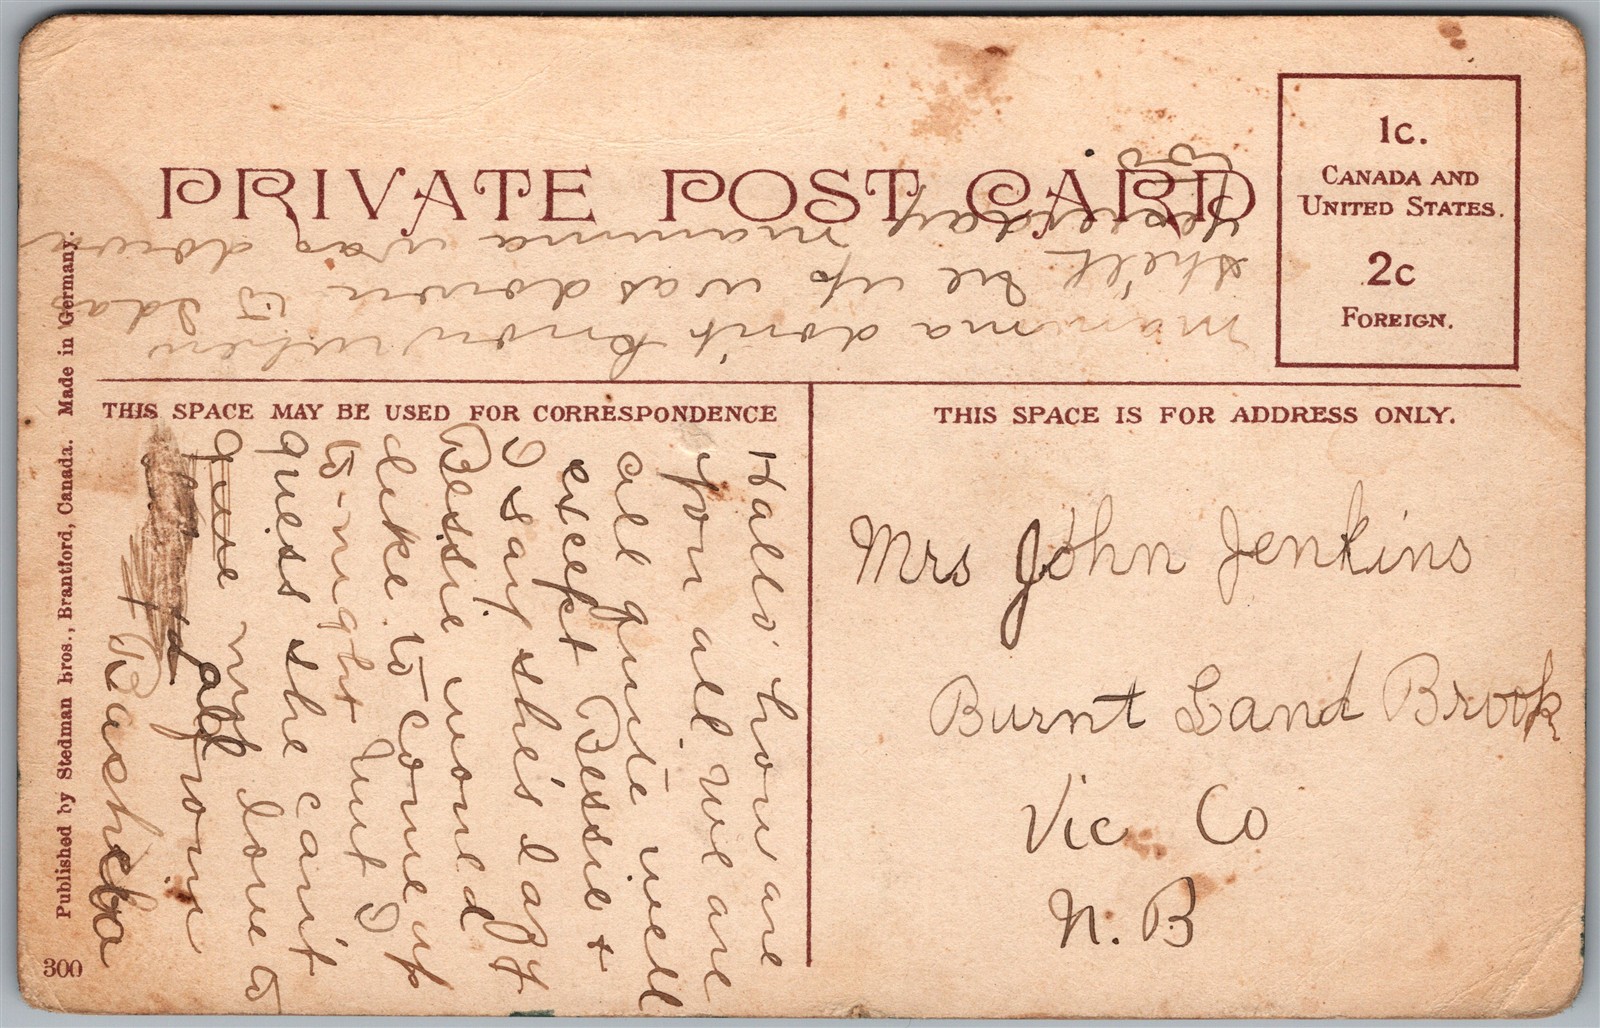 PRIVATE POST CARD
1c.
CANADA AND
UNITED STATES.
2c
FOREIGN.
THIS SPACE MAY BE USED FOR CORRESPONDENCE
THIS SPACE IS FOR ADDRESS ONLY.
Hallo how are
you all. We are
all quite well
except Bessie +
I say she's lazy
Bessie woned
like to come up
to-night but I
guess she cant
give my love to
all from
+ Basheba
mamma don't know when
she'll be up was down to Idas
yesterday mamma was down
Mrs John Jenkins
Burnt Land Brook
Vic Co
N. B
Published by Stedman Bros., Brantford, Canada. Made in Germany.
300